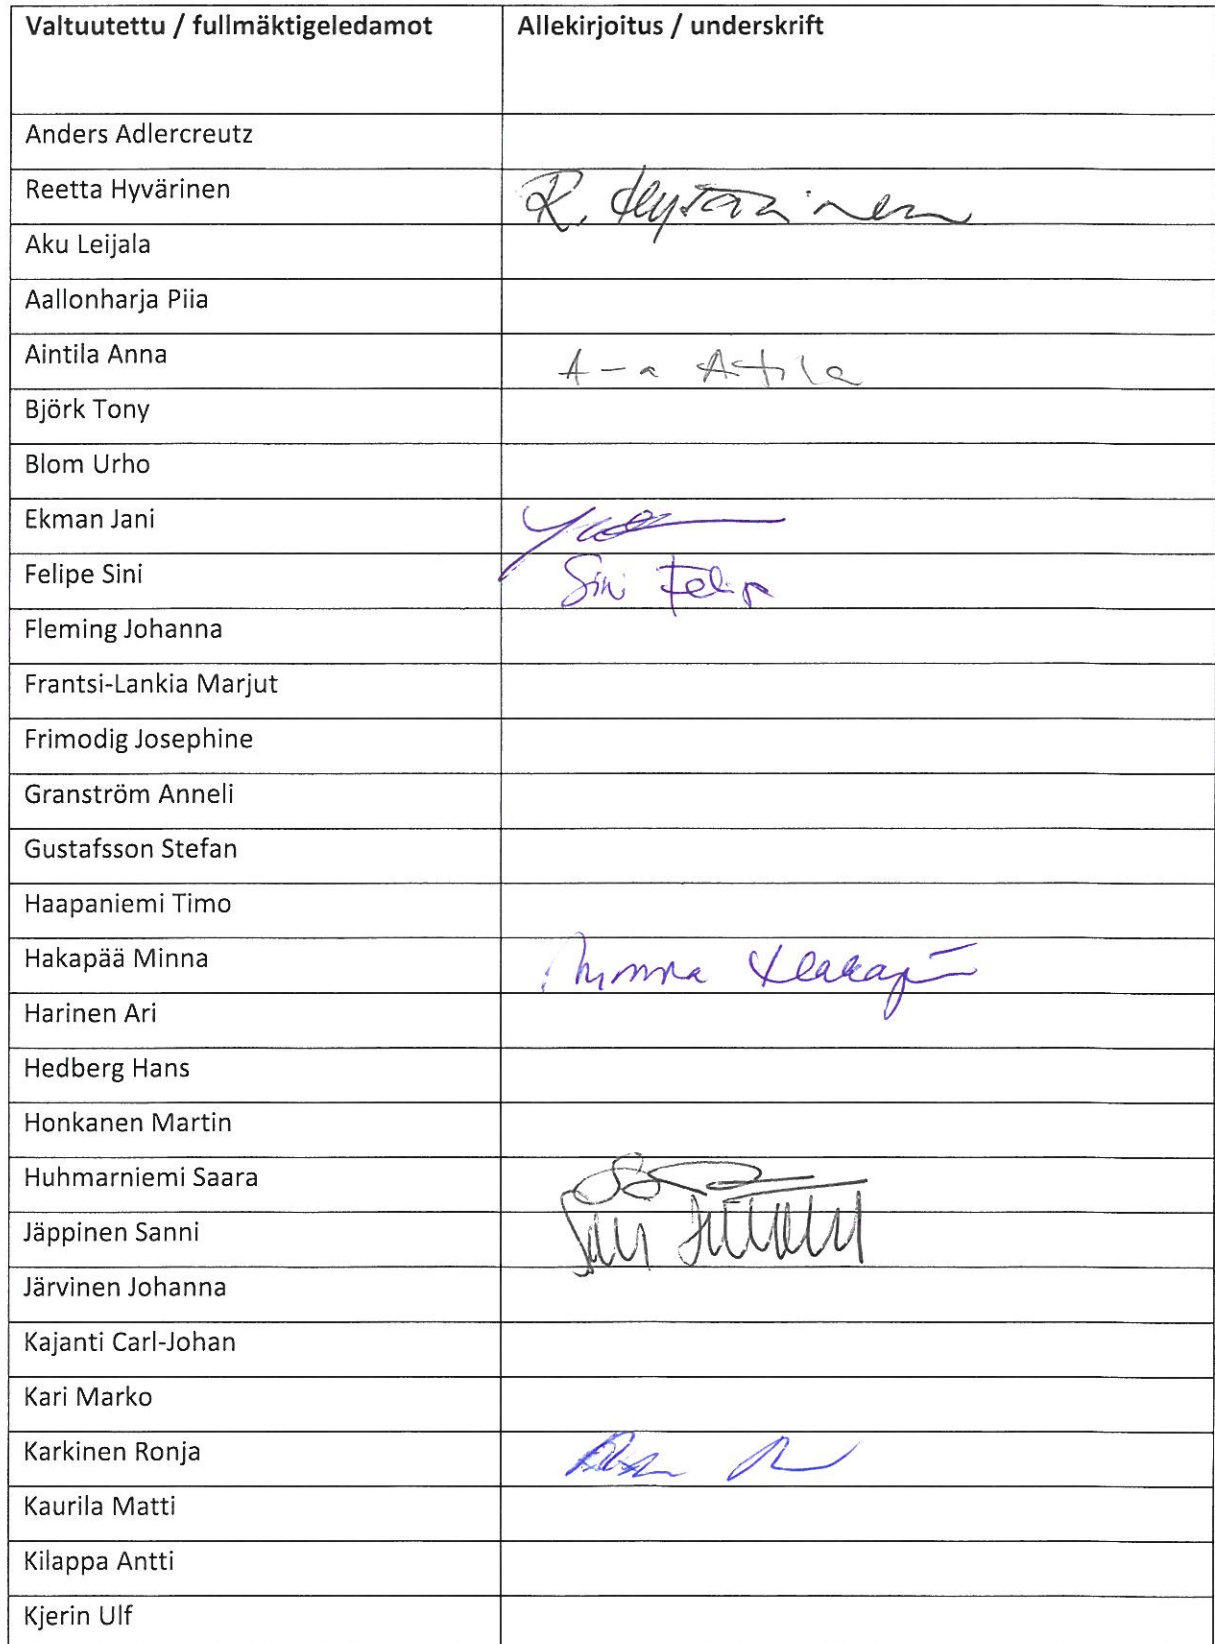 Valtuutettu / fullmäktigeledamot Allekirjoitus / underskrift
Anders Adlercreutz
Reetta Hyvärinen R. Hyvärinen
Aku Leijala
Aallonharja Piia
Aintila Anna
Björk Tony
Blom Urho
Ekman Jani
Felipe Sini Sini Felip
Fleming Johanna
Frantsi-Lankia Marjut
Frimodig Josephine
Granström Anneli
Gustafsson Stefan
Haapaniemi Timo
Hakapää Minna Minna Hakap
Harinen Ari
Hedberg Hans
Honkanen Martin
Huhmarniemi Saara
Jäppinen Sanni
Järvinen Johanna
Kajanti Carl-Johan
Kari Marko
Karkinen Ronja
Kaurila Matti
Kilappa Antti
Kjerin Ulf